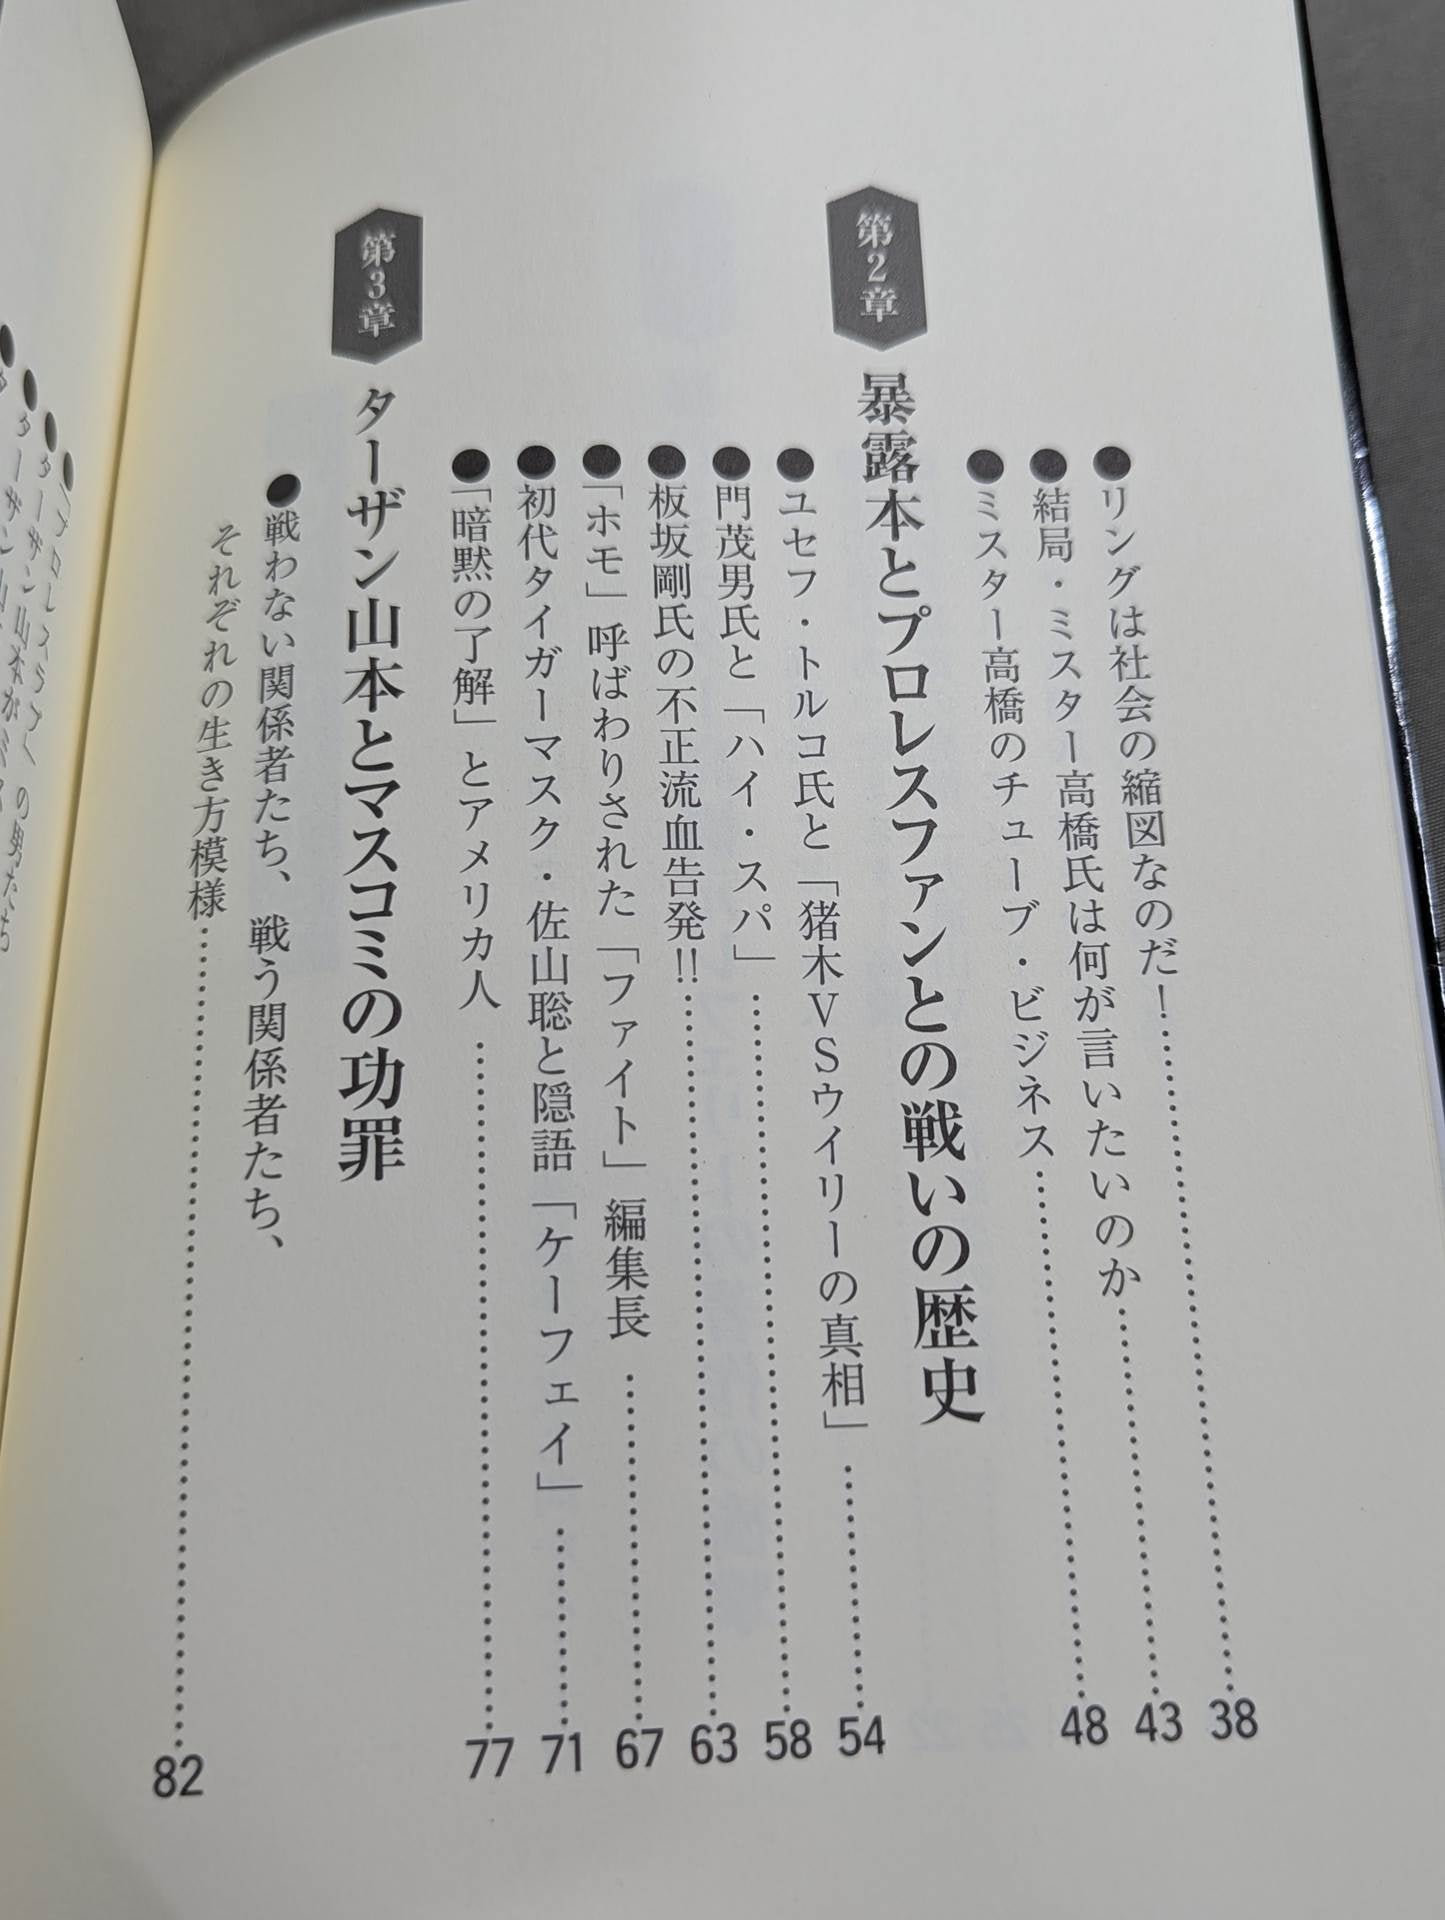 ●リングは社会の縮図なのだ!……38
●結局・ミスター高橋氏は何が言いたいのか……43
●ミスター高橋のチューブ・ビジネス……48
第2章 暴露本とプロレスファンとの戦いの歴史
●ユセフ・トルコ氏と「猪木VSウイリーの真相」……54
●門茂男氏と「ハイ・スパ」……58
●板坂剛氏の不正流血告発!!……63
●「ホモ」呼ばわりされた「ファイト」編集長……67
●初代タイガーマスク・佐山聡と隠語「ケーフェイ」……71
●「暗黙の了解」とアメリカ人……77
第3章 ターザン山本とマスコミの功罪
●戦わない関係者たち、戦う関係者たち、
それぞれの生き方模様……82